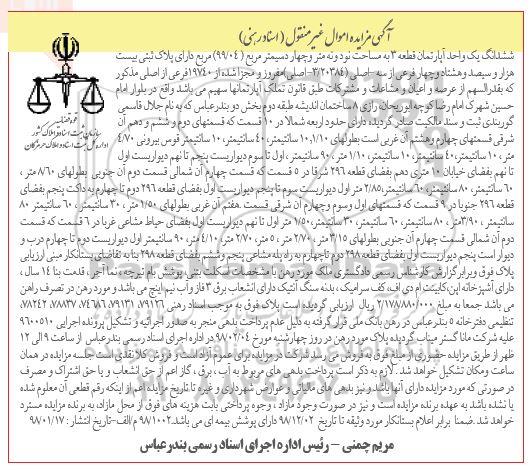 آگهی مزایده اموال غیرمنقول (اسناد رهنی)
ششدانگ یک واحد آپارتمان قطعه ۳ به مساحت نود و نه متر و چهار دسیمتر مربع (۹۹/۰۴) مربع دارای پلاک ثبتی بیست
هزار و سیصد و هشتاد و چهار فرعی از سه - اصلی (۳/۲۰۳۸۴- اصلی) مفروز و مجزا شده از ۱۹۷۴۰ فرعی از اصلی مذکور
که بقدرالسهم از عرصه و اعیان و مشاعات و مشترکات طبق قانون تملک آپارتمانها سهیم می باشد واقع در بلوار امام
حسین شهرک امام رضا کوچه ابوریحان رازی ۸ ساختمان اندیشه طبقه دوم بخش دو بندرعباس که به نام جلال قاسمی
گوربندی ثبت و سند مالکیت صادر گردیده دارای حدود اربعه شمالا در ۱۰ قسمت که قسمتهای دوم و ششم و دهم آن
شرقی قسمتهای چهارم و هشتم آن غربی است بطولهای ۱۰/۱، ۱۰سانتیمتر، ۴۰سانتیمتر، ۱۰سانتیمتر قوس بیرونی ۴/۷۰
متر، ۱۰سانتیمتر، ۴۰سانتیمتر، ۱۰سانتیمتر، ۱/۱۰ متر، ۹۰سانتیمتر، اول تا سوم دیواریست پنجم تا نهم دیواریست اول
تا نهم بفضای خیابان ۱۰ متری دهم بفضای قطعه ۲۹۶ شرقا در ۵ قسمت که قسمت چهارم آن شمالی قسمت دوم آن جنوبی بطولهای ۸/۶۰ متر،
۶۰سانتیمتر، ۸۰سانتیمتر، ۶۰سانتیمتر، ۲/۸۵ متر اول دیواریست سوم تا پنجم دیواریست اول بفضای قطعه ۲۹۶ دوم تا چهارم به داکت پنجم بفضای
قطعه ۲۹۶ جنوبا در ۹ قسمت که قسمتهای اول وسوم و چهارم آن شرقی قسمت .هفتم آن غربی بطولهای ۱/۵۰ متر، ۳۰ سانتیمتر، ۶۰ سانتیمتر ۸۰
سانتیمتر ، ۳/۹۰متر ، ۸۰ سانتیمتر، ۶۰ سانتیمتر، ۳۰سانتیمتر، ۱/۵۰متر اول تا نهم دیواریست اول بفضای حیاط مشاعی غربا در ۶ قسمت که قسمت
دوم آن شمالی قسمت چهارم آن جنوبی بطولهای ۳/۱۵ متر ، ۲/۷۰ متر ، ۵ متر، ۲/۷۰ متر، ۴/۱۰ متر، ۹۰ سانتیمتر اول دیواریست دوم تا چهارم درب و
دیوار است پنجم دیواریست اول بفضای قطعه ۲۹۸ دوم تا چهارم به راه پله مشاعی پنجم وششم بفضای قطعه ۲۹۸ بنا به تقاضای بستانکار مبنی ارزیابی
پلاک فوق و برابر گزارش کارشناس رسمی دادگستری ملک مورد رهن با مشخصات اسکلت بتنی ،پوشش بام تیرچه نما آجر ، قدمت بنا ۱۴ سال ،
دارای آشپزخانه اپن،کابینت ام دی اف، کف سرامیک ، بدنه سنگ آنتیک دارای انشعاب برق ۳ فاز و آب نیم اینچ می باشد و مورد رهن در تصرف راهن
می باشد جمعا به مبلغ ۲/۱۷۸/۸۸۰/۰۰۰ ریال ارزیابی گردیده است پلاک فوق به موجب سند رهنی ۷۹۱۲۶، ۷۹۱۳۱، ۷۴۶۸۶، ۷۸۸۳۷، ۷۸۲۴۲
تنظیمی دفترخانه ۵ بندرعباس در رهن بانک ملی قرار گرفته به دلیل عدم پرداخت بدهی منجر به صدور اجرائیه و تشکیل پرونده اجرایی ۹۶۰۰۵۱۰
علیه شرکت مانا گستر میناب گردیده پلاک مورد رهن در روز چهارشنبه مورخ ۹۸/۰۲/۰۴ در اداره اجرای اسناد رسمی بندرعباس از ساعت ۹ الی ۱۲
ظهر از طریق مزایده حضوری از مبلغ فوق به فروش می رسد شرکت در مزایده برای عموم آزاد است و فروش کلا نقدی است جلسه مزایده در همان
ساعت ومکان تشکیل خواهد شد . لازم به ذکر است پرداخت بدهی های مربوط به آب ، برق ، گاز اعم از حق انشعاب و یا حق اشتراک و مصرف
در صورتی که مورد مزایده دارای آنها باشد و نیز بدهی های مالیاتی و عوارض شهرداری و غیره تا تاریخ مزایده اعم از اینکه رقم قطعی آن معلوم شده
یا نشده باشد به عهده برنده مزایده است و نیز در صورت وجود مازاد ، وجوه پرداختی بابت هزینه های فوق از محل مازاد، به برنده مزایده مسترد
خواهد شد .ضمنا برابر اعلام بستانکار مورد وثیقه تا تاریخ ۹۸/۱۲/۰۲ دارای پوشش بیمه ای می باشد. ۹۸۱۰۰۲م/الف-تاریخ انتشار : ۹۸/۰۱/۱۷
مریم چمنی – رئیس اداره اجرای اسناد رسمی بندرعباس
قوه قضائیه
سازمان ثبت اسناد و املاک کشور
اداره کل ثبت اسناد و املاک هرمزگان